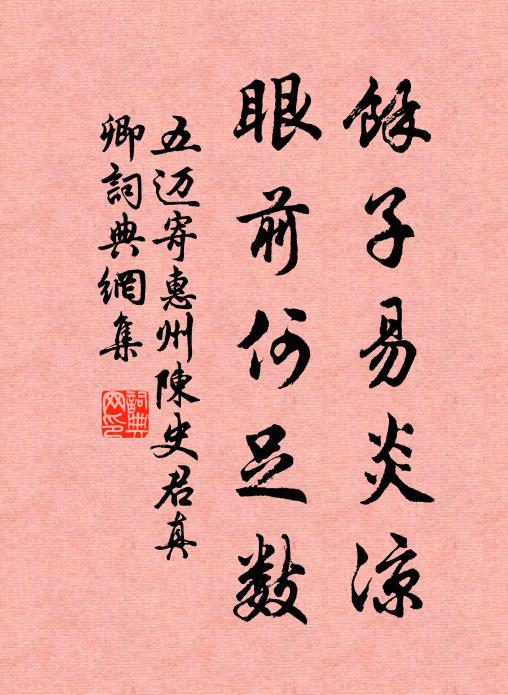 餘子易炎涼
眼前何足數
五迈寄惠州陳史君真
卿詞典網集
詞典
网印